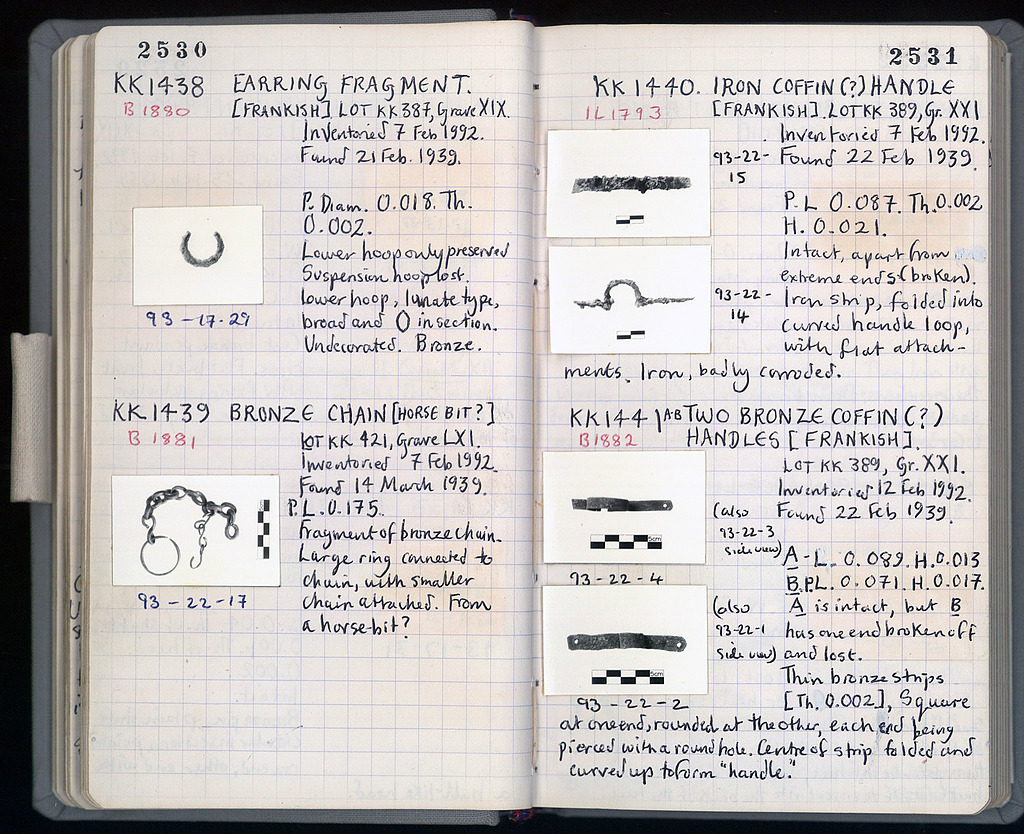 2530
KK1438 EARRING FRAGMENT.
B1880 [FRANKISH] LOT KK 387, Grave XIX.
Inventoried 7 Feb 1992.
Found 21 Feb. 1939.
P. Diam. 0.018. Th.
0.002.
Lower hoop only preserved
Suspension hoop lost.
Lower hoop, lunate type,
broad and O in section.
Undecorated. Bronze.
93-17-29
KK1439 BRONZE CHAIN [HORSE BIT?]
B1881 LOT KK 421, Grave LXI.
Inventoried 7 Feb 1992.
Found 14 March 1939.
P.L. 0.175.
Fragment of bronze chain.
Large ring connected to
chain, with smaller
chain attached. From
a horse-bit?
93-22-17
2531
KK1440. IRON COFFIN(?) HANDLE
IL1793 [FRANKISH]. LOT KK 389, Gr. XXI
Inventoried 7 Feb 1992.
93-22-15 Found 22 Feb 1939.
P.L 0.087. Th. 0.002
H. 0.021.
Intact, apart from
extreme ends (broken).
93-22-14 Iron strip, folded into
curved handle loop,
with flat attach-
ments. Iron, badly corroded.
KK1441 A-B TWO BRONZE COFFIN(?)
B1882 HANDLES [FRANKISH].
LOT KK 389, Gr. XXI.
Inventoried 12 Feb 1992.
Found 22 Feb 1939.
(also
93-22-3
side view)
5cm
93-22-4
A-L. 0.089. H. 0.013
B. P.L. 0.071. H. 0.017.
A is intact, but B
has one end broken off
and lost.
(also
93-22-1
side view)
5cm
93-22-2
Thin bronze strips
[Th. 0.002], Square
at one end, rounded at the other, each end being
pierced with a round hole. Centre of strip folded and
curved up to form "handle."